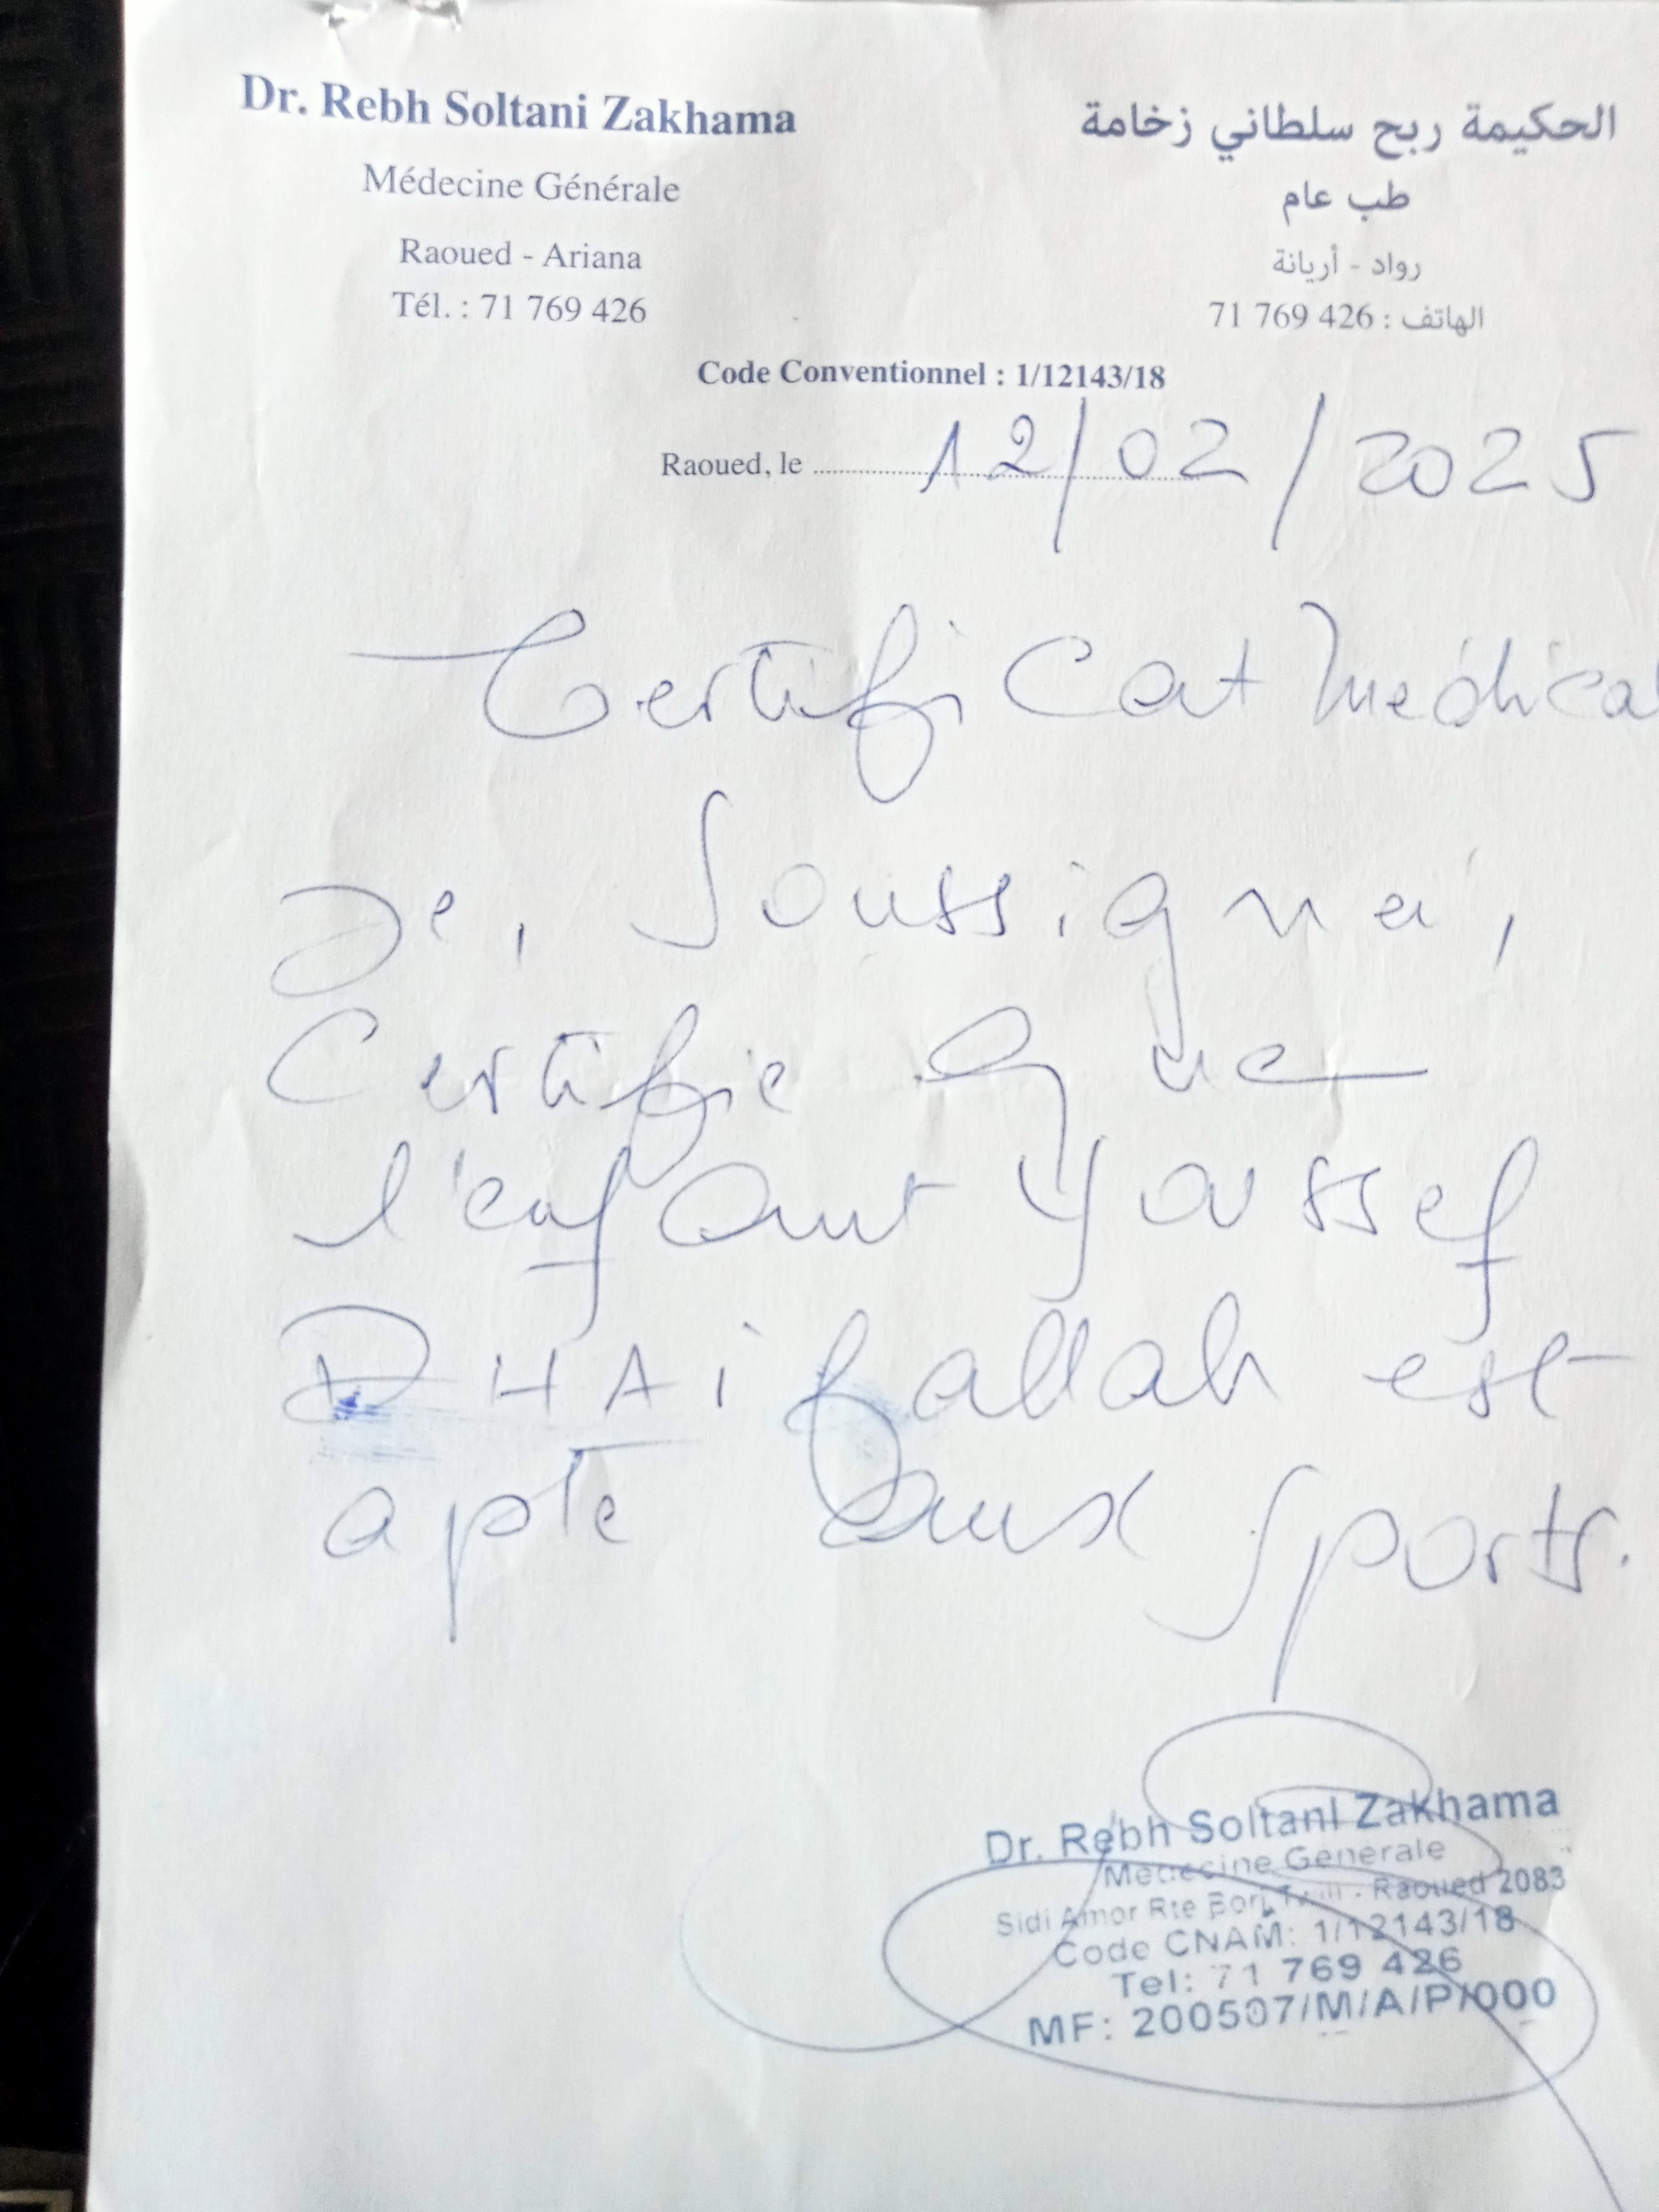 Dr. Rebh Soltani Zakhama
Médecine Générale
Raoued - Ariana
Tél. : 71 769 426
الحكيمة ربح سلطاني زخامة
طب عام
رواد - أريانة
الهاتف : 426 769 71
Code Conventionnel : 1/12143/18
Raoued, le 12/02/2025
Certificat Médical
Je, Soussigné,
Certifie que
l'enfant Youssef
DHAifallah est
apte aux sports.
Dr. Rebh SoltanI Zakhama
Medecine Generale
Sidi Amor Rte Borj - Raoued 2083
Code CNAM: 1/12143/18
Tel: 71 769 426
MF: 200507/M/A/P/000